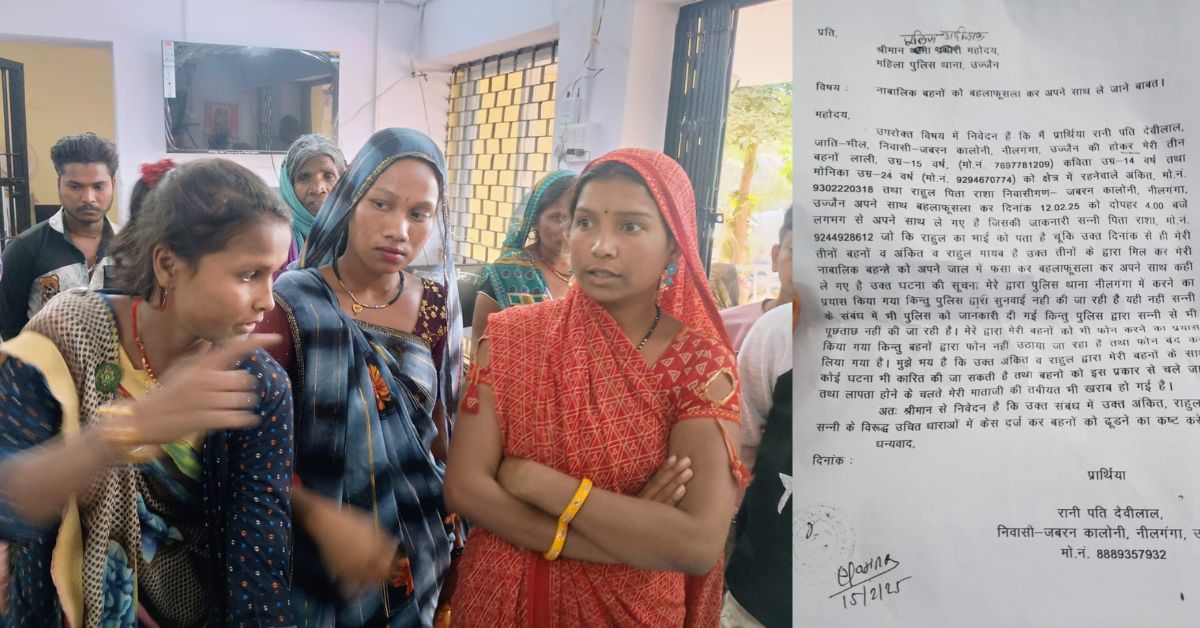 प्रति,
पुलिस अधीक्षक
श्रीमान थाना प्रभारी महोदय,
महिला पुलिस थाना, उज्जैन
विषय : नाबालिक बहनों को बहलाफूसला कर अपने साथ ले जाने बाबत।
महोदय,
उपरोक्त विषय में निवेदन है कि मैं प्रार्थिया रानी पति देवीलाल,
जाति–भील, निवासी–जबरन कालोनी, नीलगंगा, उज्जैन की होकर मेरी तीन
बहनों लाली, उम्र–15 वर्ष, (मो.नं. 7697781209) कविता उम्र–14 वर्ष तथा
मोनिका उम्र–24 वर्ष (मो.नं. 9294670774) को क्षेत्र में रहनेवाले अंकित, मो.नं.
9302220318 तथा राहुल पिता राशा निवासीगण– जबरन कालोनी, नीलगंगा,
उज्जैन अपने साथ बहलाफूसला कर दिनांक 12.02.25 को दोपहर 4.00 बजे
लगभग से अपने साथ ले गए है जिसकी जाकनारी सन्नी पिता राशा, मो.नं.
9244928612 जो कि राहुल का भाई को पता है चूंकि उक्त दिनांक से ही मेरी
तीनों बहनों व अंकित व राहुल गायब है उक्त तीनों के द्वारा मिल कर मेरी
नाबालिक बहनों को अपने जाल में फसा कर बहलाफूसला कर अपने साथ कहीं
ले गए है उक्त घटना की सूचना मेरे द्वारा पुलिस थाना नीलगंगा में करने का
प्रयास किया गया किन्तु पुलिस द्वारा सुनवाई नही की जा रही है यही नहीं सन्नी
के संबंध में भी पुलिस को जानकारी दी गई किन्तु पुलिस द्वारा सन्नी से भी
पूछताछ नहीं की जा रही है। मेरे द्वारा मेरी बहनों को भी फोन करने का प्रयास
किया गया किन्तु बहनों द्वारा फोन नहीं उठाया जा रहा है तथा फोन बंद कर
लिया गया है। मुझे भय है कि उक्त अंकित व राहुल द्वारा मेरी बहनों के
कोई घटना भी कारित की जा सकती है तथा बहनों को इस प्रकार से चले
तथा लापता होने के चलते मेरी माताजी की तबीयत भी खराब हो गई है।
अतः श्रीमान से निवेदन है कि उक्त संबंध में उक्त अंकित, राहुल
सन्नी के विरूद्ध उचित धाराओं में केस दर्ज कर बहनों को ढूडने का कष्ट
धन्यवाद,
दिनांक :
प्रार्थिया
रानी पति देवीलाल,
निवासी–जबरन कालोनी, नीलगंगा,
मो.नं. 8889357932
15/2/25